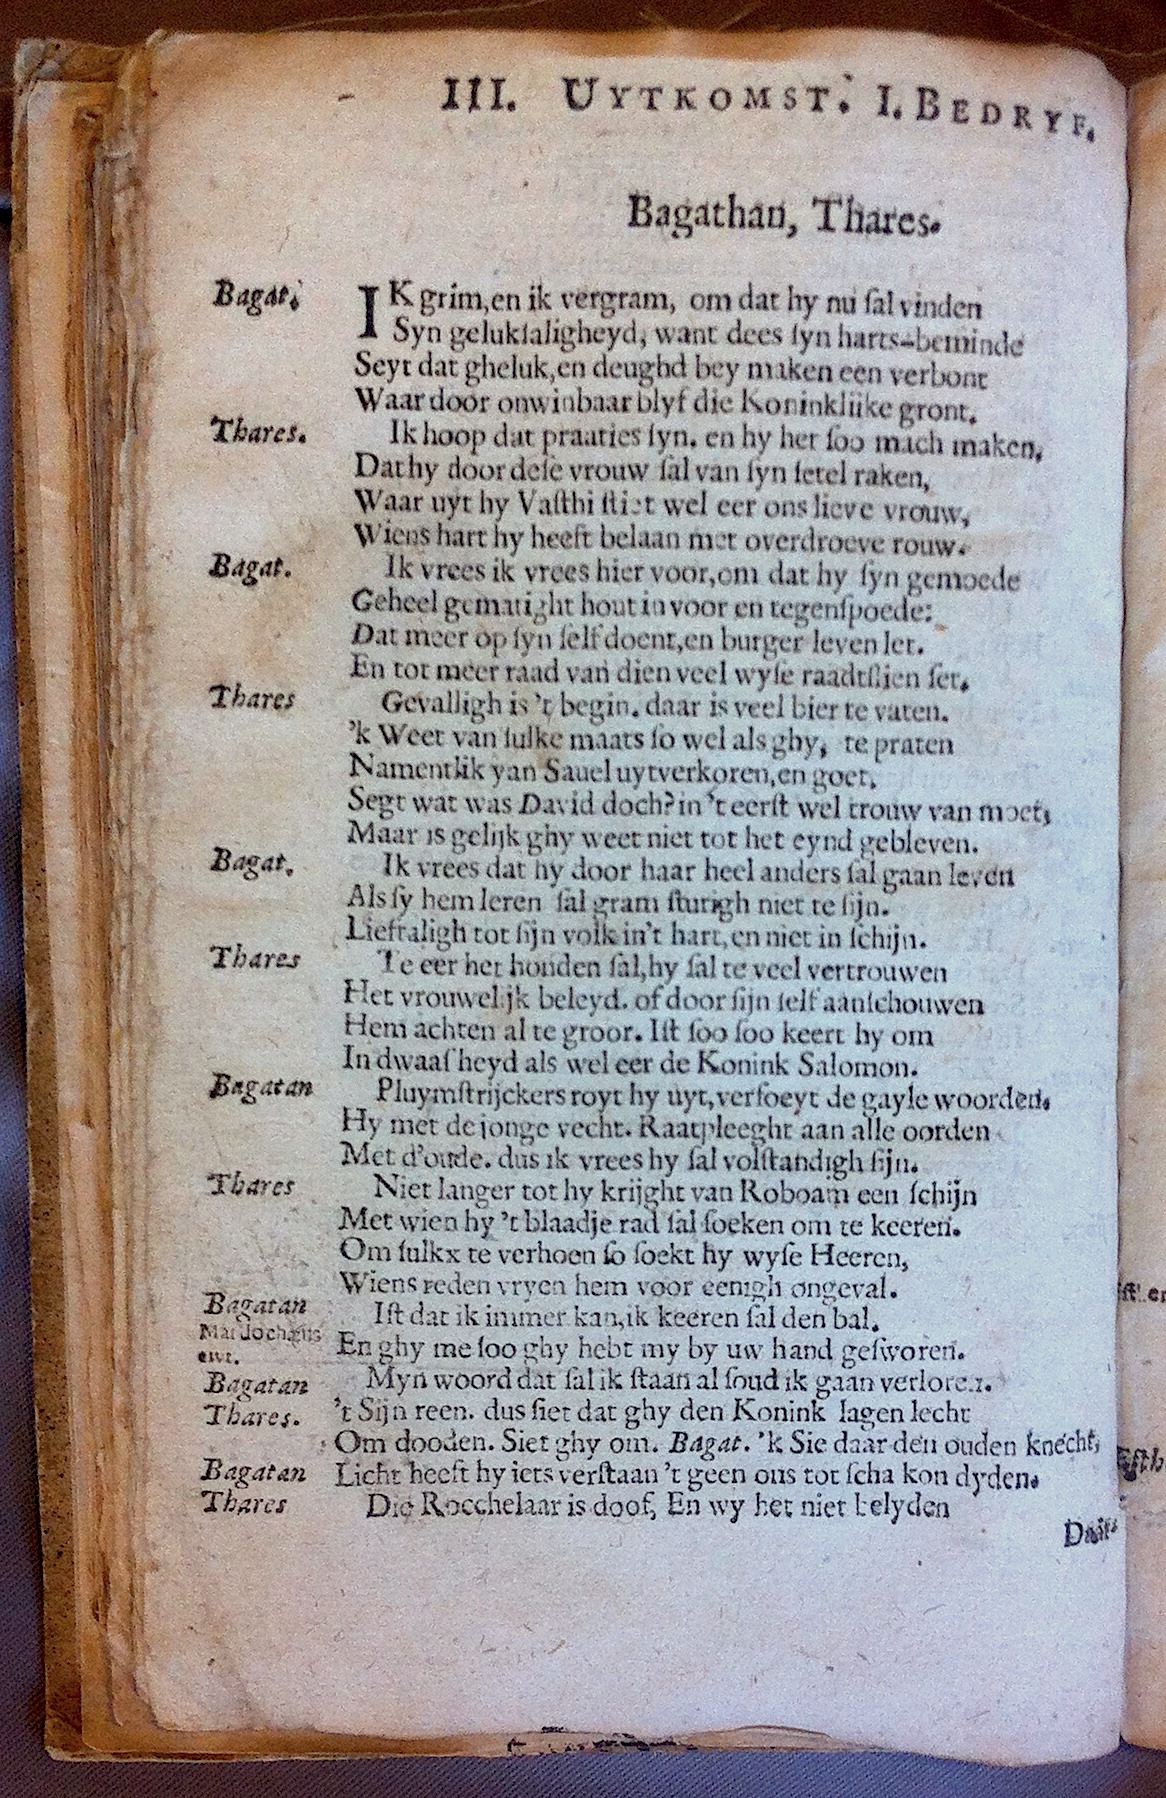 III. UYTKOMST. I. BEDRYF.
Bagathan, Thares.
Bagat. IK grim, en ik vergram, om dat hy nu ſal vinden
Syn gelukſaligheyd, want dees ſyn harts-beminde
Seyt dat gheluk, en deughd bey maken een verbont
Waar door onwinbaar blyf die Koninklijke gront.
Thares. Ik hoop dat praaties ſyn. en hy het ſoo mach maken,
Dat hy door deſe vrouw ſal van ſyn ſetel raken,
Waar uyt hy Vaſthi ſtiet wel eer ons lieve vrouw,
Wiens hart hy heeft belaan met overdroeve rouw.
Bagat. Ik vrees ik vrees hier voor, om dat hy ſyn gemoede
Geheel gematight hout in voor en tegenſpoede:
Dat meer op ſyn ſelf doent, en burger leven let.
En tot meer raad van dien veel wyſe raadtſlien ſet.
Thares Gevalligh is 't begin. daar is veel bier te vaten.
'k Weet van ſulke maats ſo wel als ghy, te praten
Namentlik van Sauel uytverkoren, en goet.
Segt wat was David doch? in 't eerſt wel trouw van moet,
Maar is gelijk ghy weet niet tot het eynd gebleven.
Bagat. Ik vrees dat hy door haar heel anders ſal gaan leven
Als ſy hem leren ſal gram ſturigh niet te ſijn.
Lieftaligh tot ſijn volk in't hart, en niet in ſchijn.
Thares Te eer het honden ſal, hy ſal te veel vertrouwen
Het vrouwelijk beleyd. of door ſijn ſelf aanſchouwen
Hem achten al te groot. Iſt ſoo ſoo keert hy om
In dwaaſheyd als wel eer de Konink Salomon.
Bagatan Pluymſtrijckers royt hy uyt, verfoeyt de gayle woorden.
Hy met de jonge vecht. Raatpleeght aan alle oorden
Met d'oude. dus ik vrees hy ſal volſtandigh ſijn.
Thares Niet langer tot hy krijght van Roboam een ſchijn
Met wien hy 't blaadje rad ſal ſoeken om te keeren.
Om ſulkx te verhoen ſo ſoekt hy wyſe Heeren,
Wiens reden vryen hem voor eenigh ongeval.
Bagatan Iſt dat ik immer kan, ik keeren ſal den bal.
Mardochæus En ghy me ſoo ghy hebt my by uw hand geſworen.
Bagatan Myn woord dat ſal ik ſtaan al ſoud ik gaan verloren.
Thares. 't Sijn reen. dus ſiet dat ghy den Konink lagen lecht
Om dooden. Siet ghy om. Bagat. 'k Sie daar den ouden knecht,
Bagatan Licht heeft hy iets verſtaan 't geen ons tot ſcha kon dyden.
Thares Die Rocchelaar is doof, En wy het niet belyden